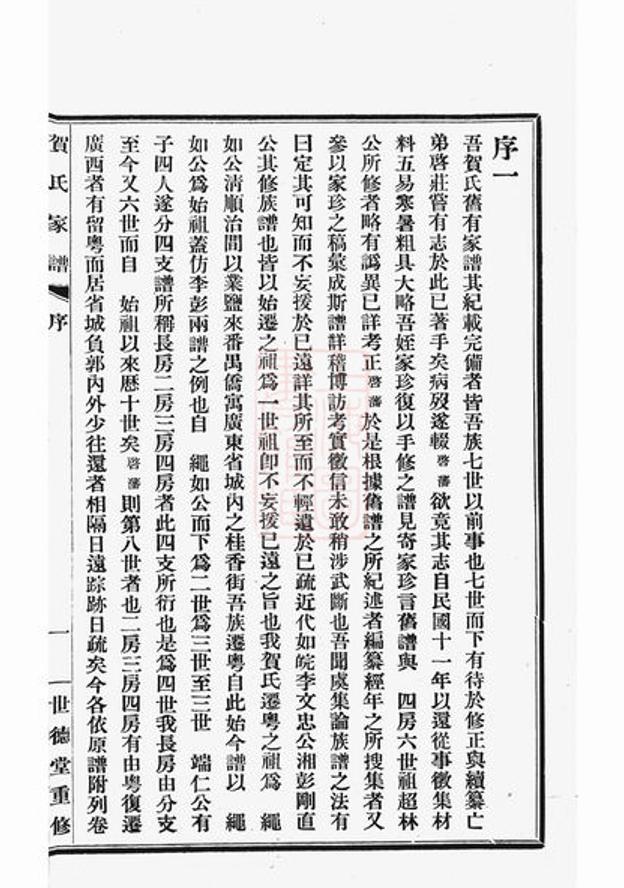 序一
吾賀氏舊有家譜其紀載完備者皆吾族七世以前事也七世而下有待於修正與續纂亡
弟啓莊嘗有志於此已著手矣病歿遂輟啓藩欲竟其志自民國十一年以還從事徵集材
料五易寒暑粗具大略吾姪家珍復以手修之譜見寄家珍言舊譜與 四房六世祖超林
公所修者略有譌異已詳考正啓藩於是根據舊譜之所紀述者編纂經年之所搜集者又
參以家珍之稿彙成斯譜詳稽博訪考實徵信未敢稍涉武斷也吾聞虞集論族譜之法有
曰定其可知而不妄援於已遠詳其所至而不輕遺於已疏近代如皖李文忠公湘彭剛直
公其修族譜也皆以始遷之祖爲一世祖卽不妄援已遠之旨也我賀氏遷粵之祖爲 繩
如公清順治間以業鹽來番禺僑寓廣東省城內之桂香街吾族遷粵自此始今譜以 繩
如公爲始祖蓋仿李彭兩譜之例也自 繩如公而下爲二世爲三世至三世 端仁公有
子四人遂分四支譜所稱長房二房三房四房者此四支所衍也是爲四世我長房由分支
至今又六世而自 始祖以來歷十世矣啓藩則第八世者也二房三房四房有由粵復遷
廣西者有留粵而居省城負郭內外少往還者相隔日遠踪跡日疏矣今各依原譜附列卷
賀氏家譜 序 一 世德堂重修